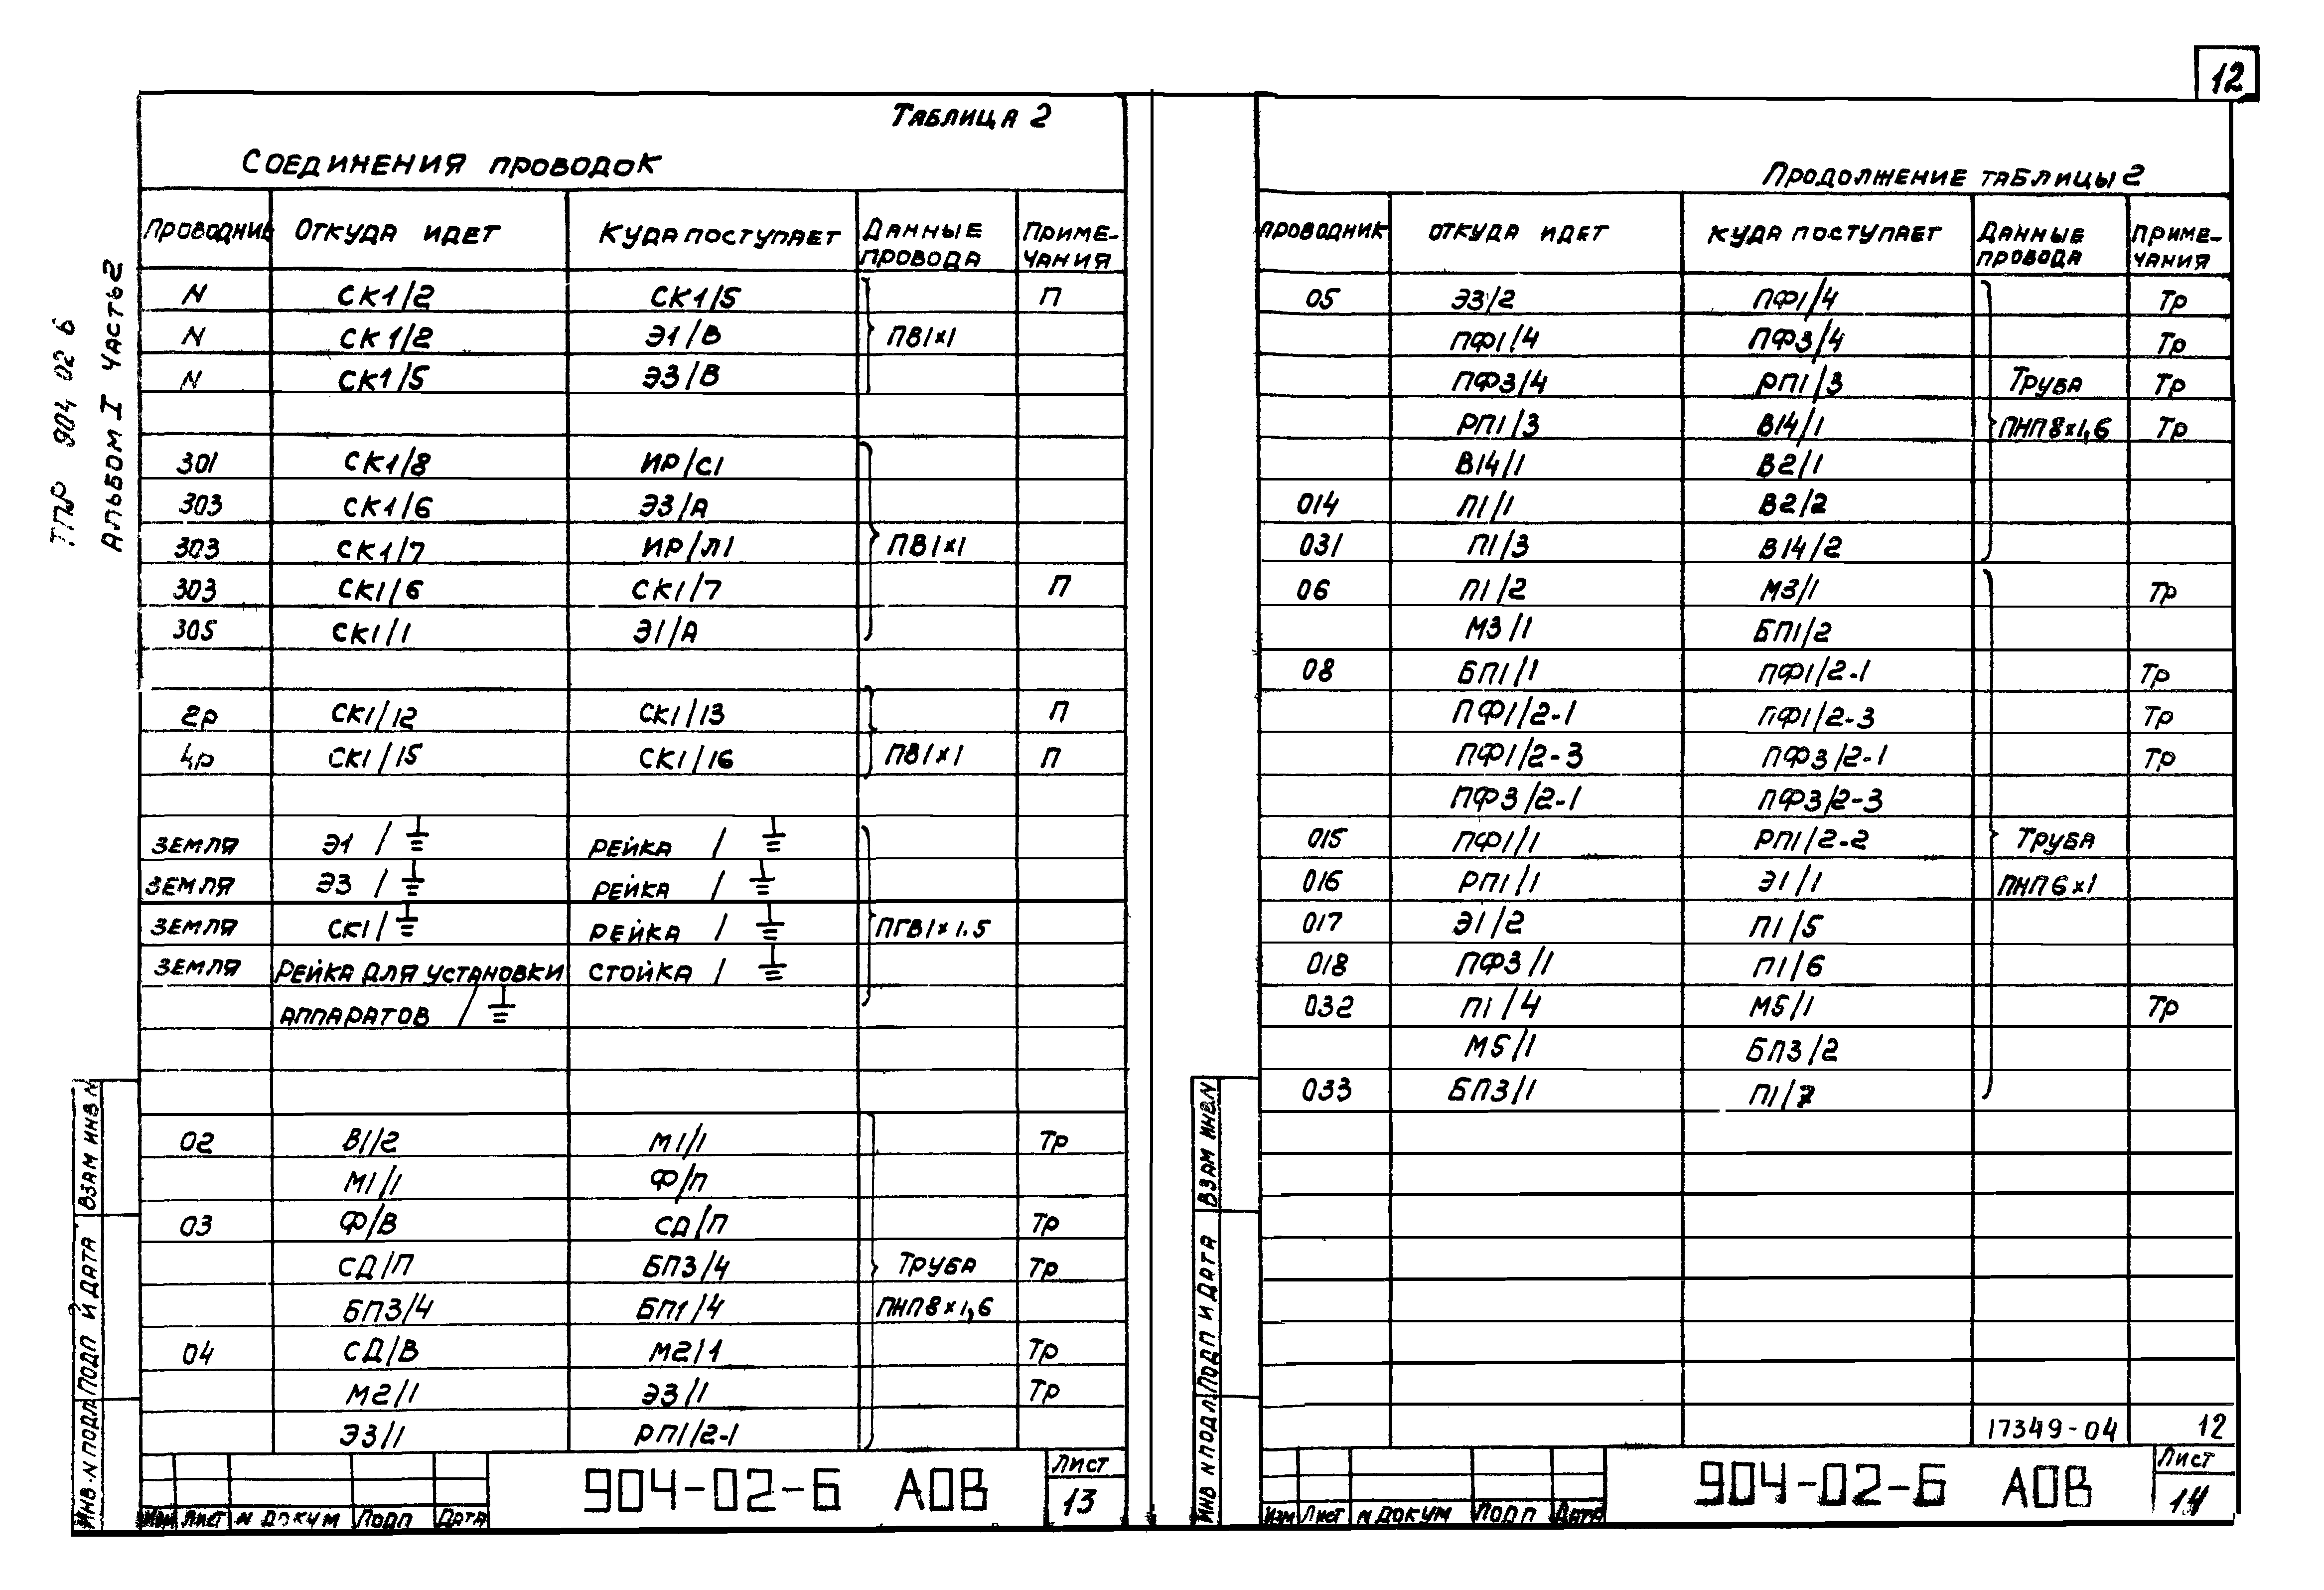 12
ТПР 904 02 6
Альбом I часть 2
Таблица 2
Соединения проводок
Проводник Откуда идет Куда поступает Данные провода Примечания
N СК1/2 СК1/5 П
N СК1/2 Э1/В ПВ1×1
N СК1/5 Э3/В
301 СК1/8 ИР/С1
303 СК1/6 Э3/А
303 СК1/7 ИР/Л1 ПВ1×1
303 СК1/6 СК1/7 П
305 СК1/1 Э1/А
2р СК1/12 СК1/13 П
4р СК1/15 СК1/16 ПВ1×1 П
земля Э1 / ⏚ рейка / ⏚
земля Э3 / ⏚ рейка / ⏚
земля СК1/ ⏚ рейка / ⏚ ПГВ1×1.5
земля рейка для установки стойка / ⏚
аппаратов / ⏚
02 В1/2 М1/1 Тр
М1/1 Ф/П
03 Ф/В СД/П Тр
СД/П БП3/4 Труба Тр
БП3/4 БП1/4 ПНП8×1,6
04 СД/В М2/1 Тр
М2/1 Э3/1 Тр
Э3/1 РП1/2-1
Инв. N подл Подп и дата Взам инв N
Изм Лист N докум Подп Дата
904-02-6 АОВ
Лист
13
Продолжение таблицы 2
Проводник Откуда идет Куда поступает Данные провода Примечания
05 Э3/2 ПФ1/4 Тр
ПФ1/4 ПФ3/4 Тр
ПФ3/4 РП1/3 Труба Тр
РП1/3 В14/1 ПНП8×1,6 Тр
В14/1 В2/1
014 П1/1 В2/2
031 П1/3 В14/2
06 П1/2 М3/1 Тр
М3/1 БП1/2
08 БП1/1 ПФ1/2-1 Тр
ПФ1/2-1 ПФ1/2-3 Тр
ПФ1/2-3 ПФ3/2-1 Тр
ПФ3/2-1 ПФ3/2-3
015 ПФ1/1 РП1/2-2 Труба
016 РП1/1 Э1/1 ПНП6×1
017 Э1/2 П1/5
018 ПФ3/1 П1/6
032 П1/4 М5/1 Тр
М5/1 БП3/2
033 БП3/1 П1/7
17349-04 12
Инв N подл Подп и дата Взам инв.N
Изм Лист N докум Подп Дата
904-02-6 АОВ
Лист
14